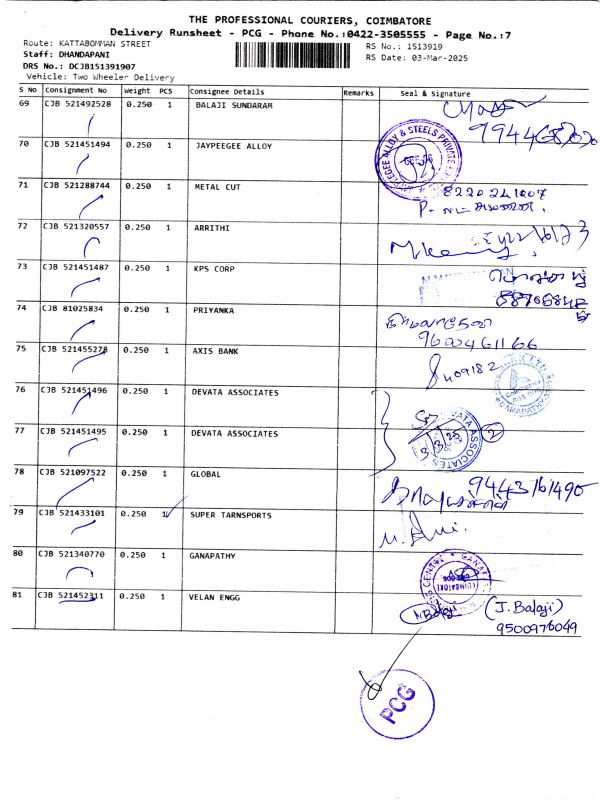 THE PROFESSIONAL COURIERS, COIMBATORE
Delivery Runsheet - PCG - Phone No.:0422-3505555 - Page No.:7
Route: KATTABOMMAN STREET
RS No.: 1513919
Staff: DHANDAPANI
RS Date: 03-Mar-2025
DRS No.: DCJB151391907
Vehicle: Two Wheeler Delivery
S No Consignment No Weight PCS Consignee Details Remarks Seal & Signature
69 CJB 521492528 0.250 1 BALAJI SUNDARAM
70 CJB 521451494 0.250 1 JAYPEEGEE ALLOY
71 CJB 521288744 0.250 1 METAL CUT
8220241807
72 CJB 521320557 0.250 1 ARRITHI
73 CJB 521451487 0.250 1 KPS CORP
74 CJB 81025834 0.250 1 PRIYANKA
75 CJB 521455278 0.250 1 AXIS BANK
76 CJB 521451496 0.250 1 DEVATA ASSOCIATES
77 CJB 521451495 0.250 1 DEVATA ASSOCIATES
3/3/25
2
78 CJB 521097522 0.250 1 GLOBAL
9443161490
79 CJB 521433101 0.250 1 SUPER TARNSPORTS
80 CJB 521340770 0.250 1 GANAPATHY
81 CJB 521452311 0.250 1 VELAN ENGG
(J. Balaji)
9500976049
PCG